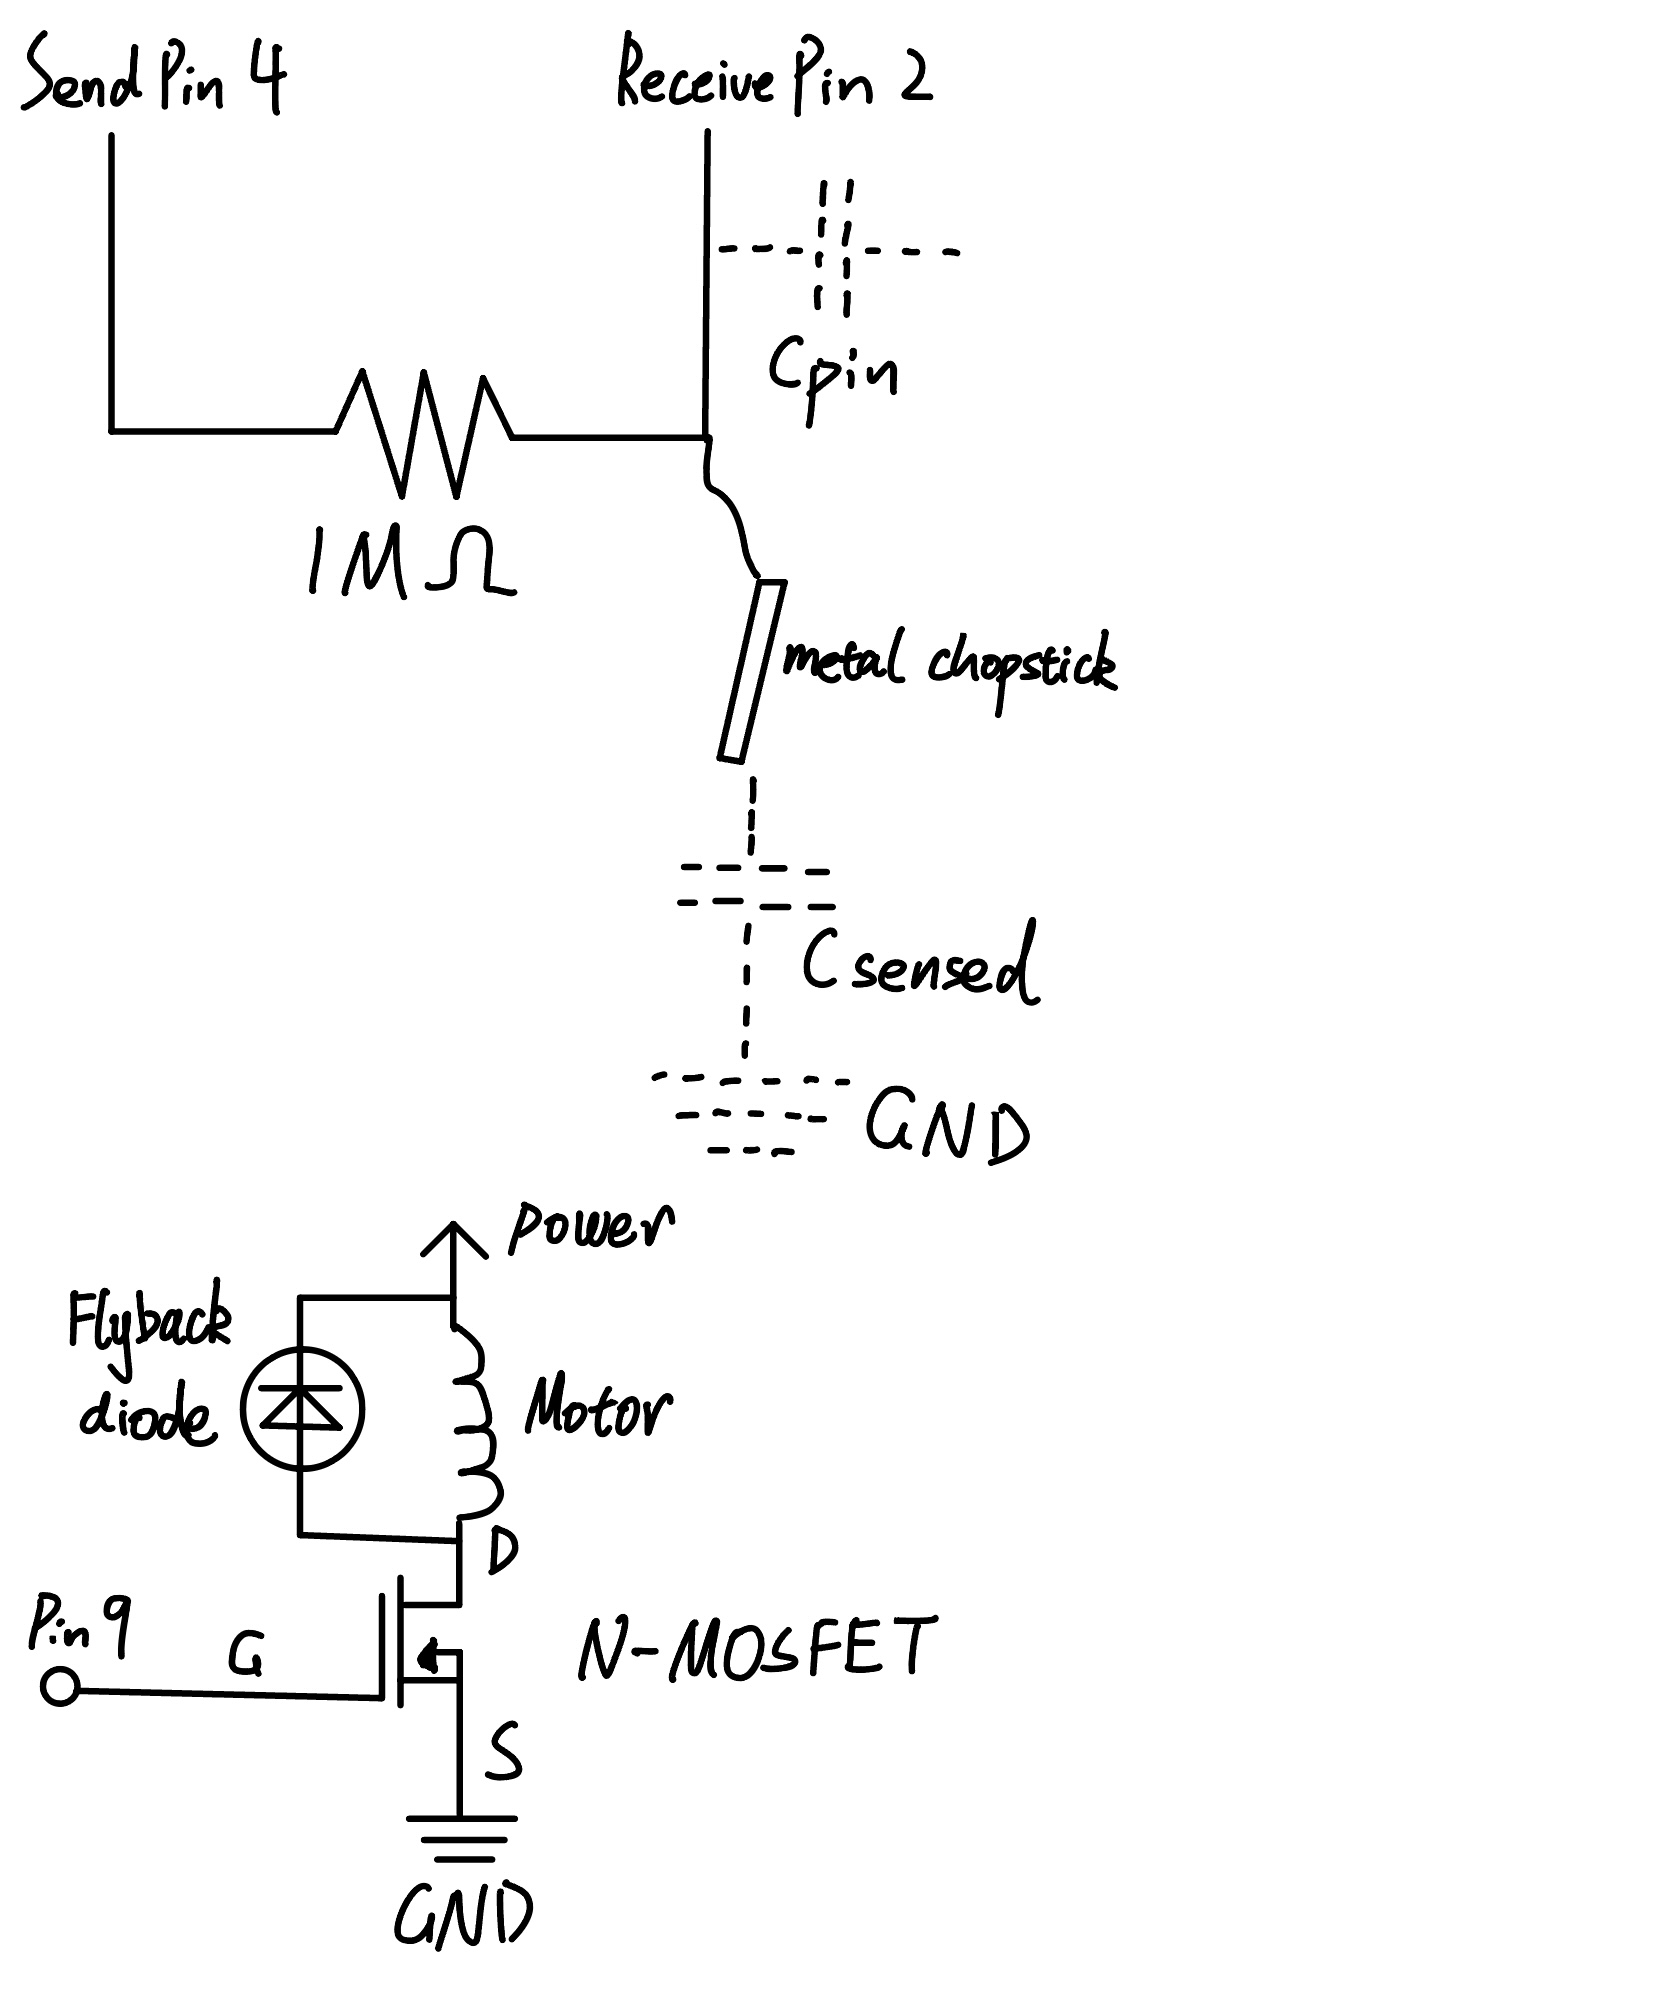 Send Pin 4
Receive Pin 2
Cpin
1MΩ
metal chopstick
Csensed
GND
power
Flyback
diode
Motor
D
Pin 9
G
N-MOSFET
S
GND